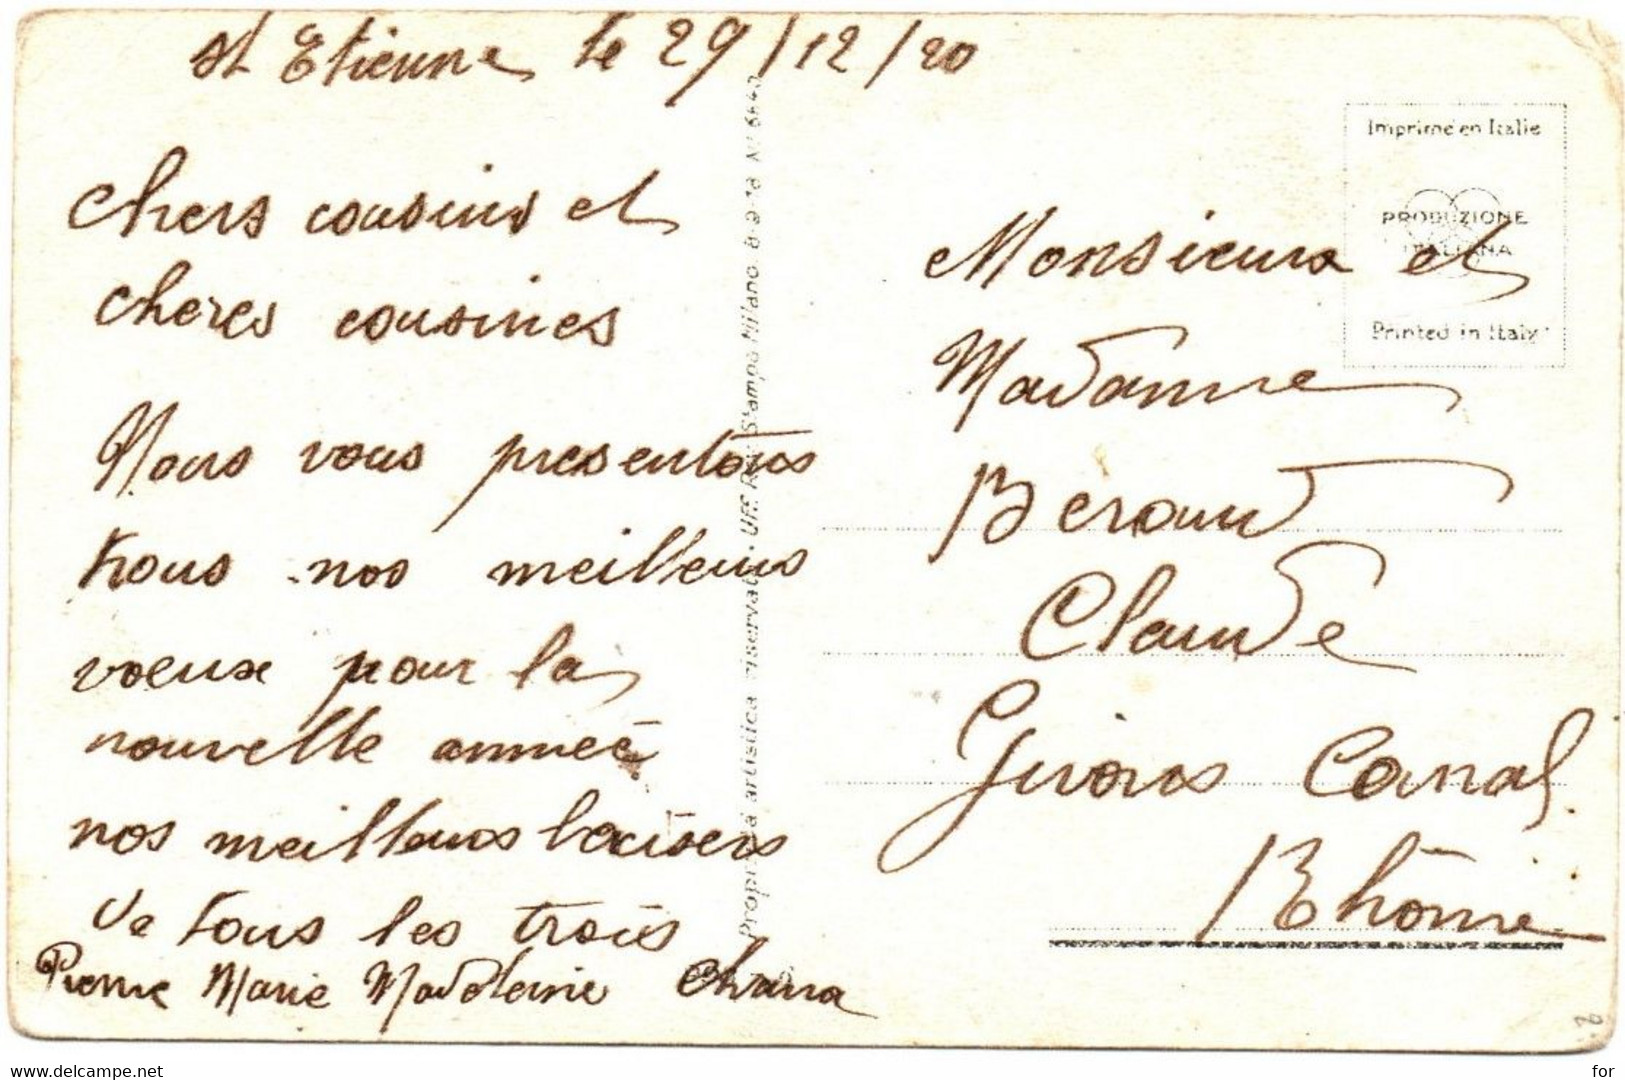 st Etienne le 29/12/20
chers cousins et
cheres cousines
Nous vous presentons
tous nos meilleurs
voeux pour la
nouvelle année
nos meilleurs baisers
de tous les trois
Pierre Marie Madeleine
Monsieur et
Madame
Beraud
Claude
Givors Canal
Rhône
Imprimé en Italie
PRODUZIONE
ITALIANA
Printed in Italy
Proprietà artistica riservata - Uff. Rev. Stampa Milano
www.delcampe.net
for